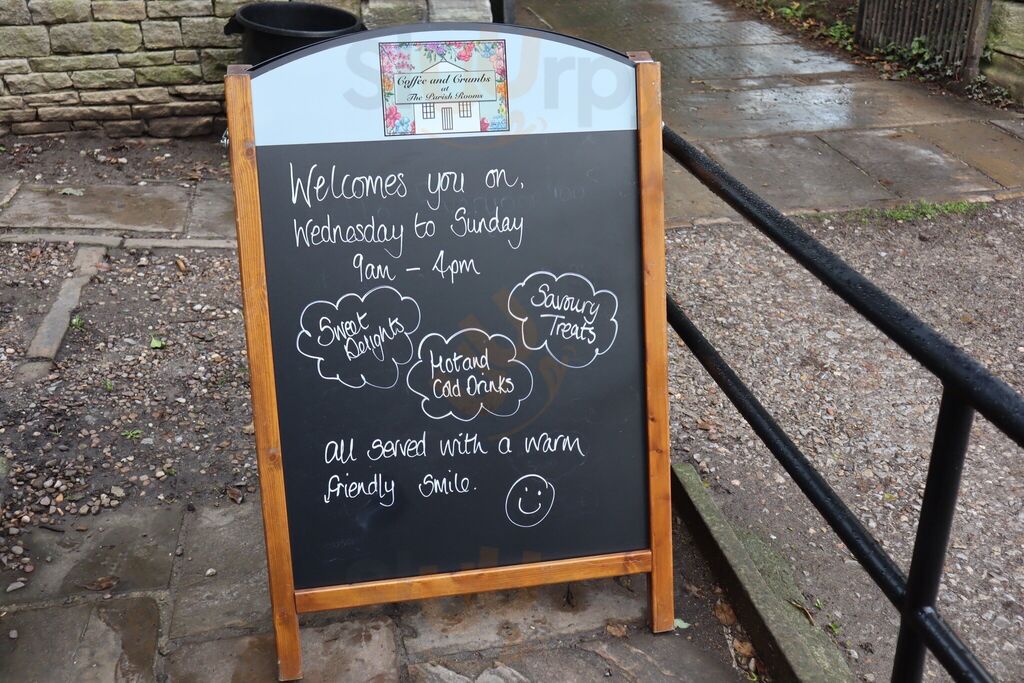 Coffee and Crumbs
at
The Parish Rooms
Welcomes you on,
Wednesday to Sunday
9am – 4pm
Sweet
Delights
Hot and
Cold Drinks
Savoury
Treats
all served with a warm
friendly smile.